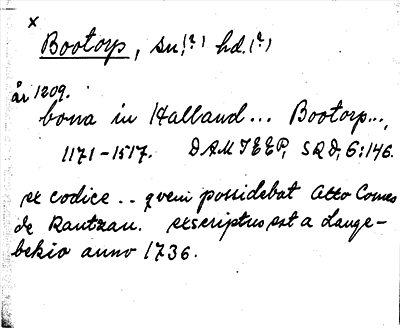 x
Bootorp, sn.(?) hd.(?)
år 1209.
bona in Halland... Bootorp...,
1171-1517. DAMTEEP, SRD, 6:146.
ex codice .. qvem possidebat Otto Comes
de Rantzau. exscriptus est a Lange-
bekio anno 1736.